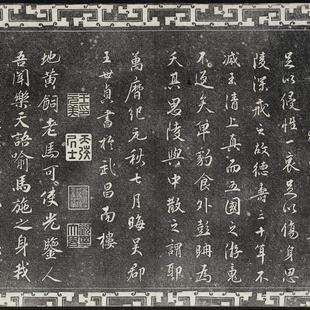 足以侵性一哀足以傷身思
陵深戒之故德壽三十年不
減玉清上真而五國之游竟
不返矣單豹食外彭聃為
夭其思陵與中散之謂耶
萬曆紀元秋七月晦吳郡
王世貞書於武昌南樓
天弢居士
地黃飼老馬可使光鑒人
吾聞樂天語喻馬施之身我